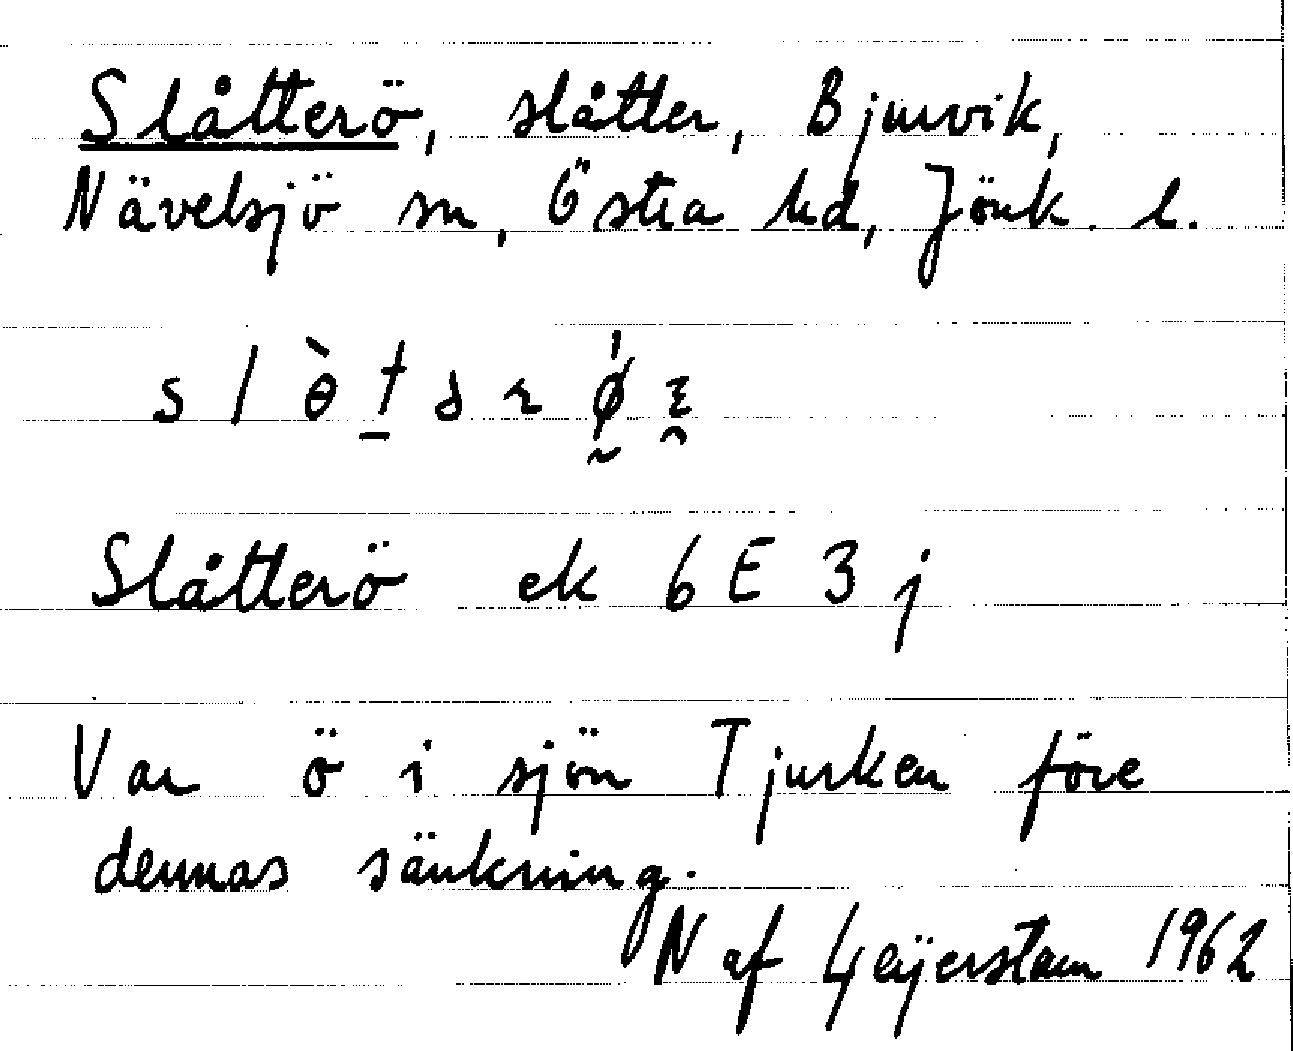 Slåtterö, slåtter, Bjurvik,
Nävelsjö sn, Östra hd, Jönk. l.
Slåtterö ek 6 E 3 j
Var ö i sjön Tjurken före
dennas sänkning.
N af Geijerstam 1962